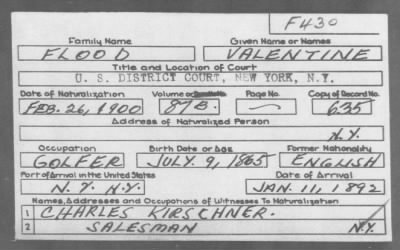 F430
Family Name Given Name or Names
FLOOD VALENTINE
Title and Location of Court
U. S. DISTRICT COURT, NEW YORK, N.Y.
Date of Naturalization Volume or Page No. Copy of Record No.
FEB. 26, 1900 87B. — 635
Address of Naturalized Person
N.Y.
Occupation Birth Date or Age Former Nationality
GOLFER JULY. 9, 1865 ENGLISH
Port of Arrival in the United States Date of Arrival
N. Y. N.Y. JAN. 11, 1892
Names, Addresses and Occupations of Witnesses To Naturalization
1 CHARLES KIRSCHNER.
2 SALESMAN N.Y.